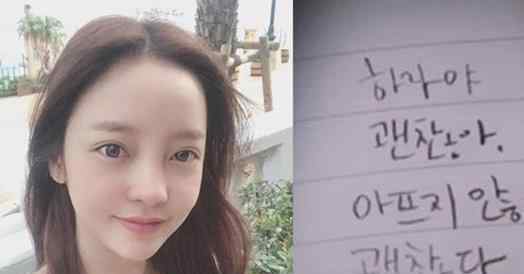 하라야
괜찮아.
아프지 않
괜찮다